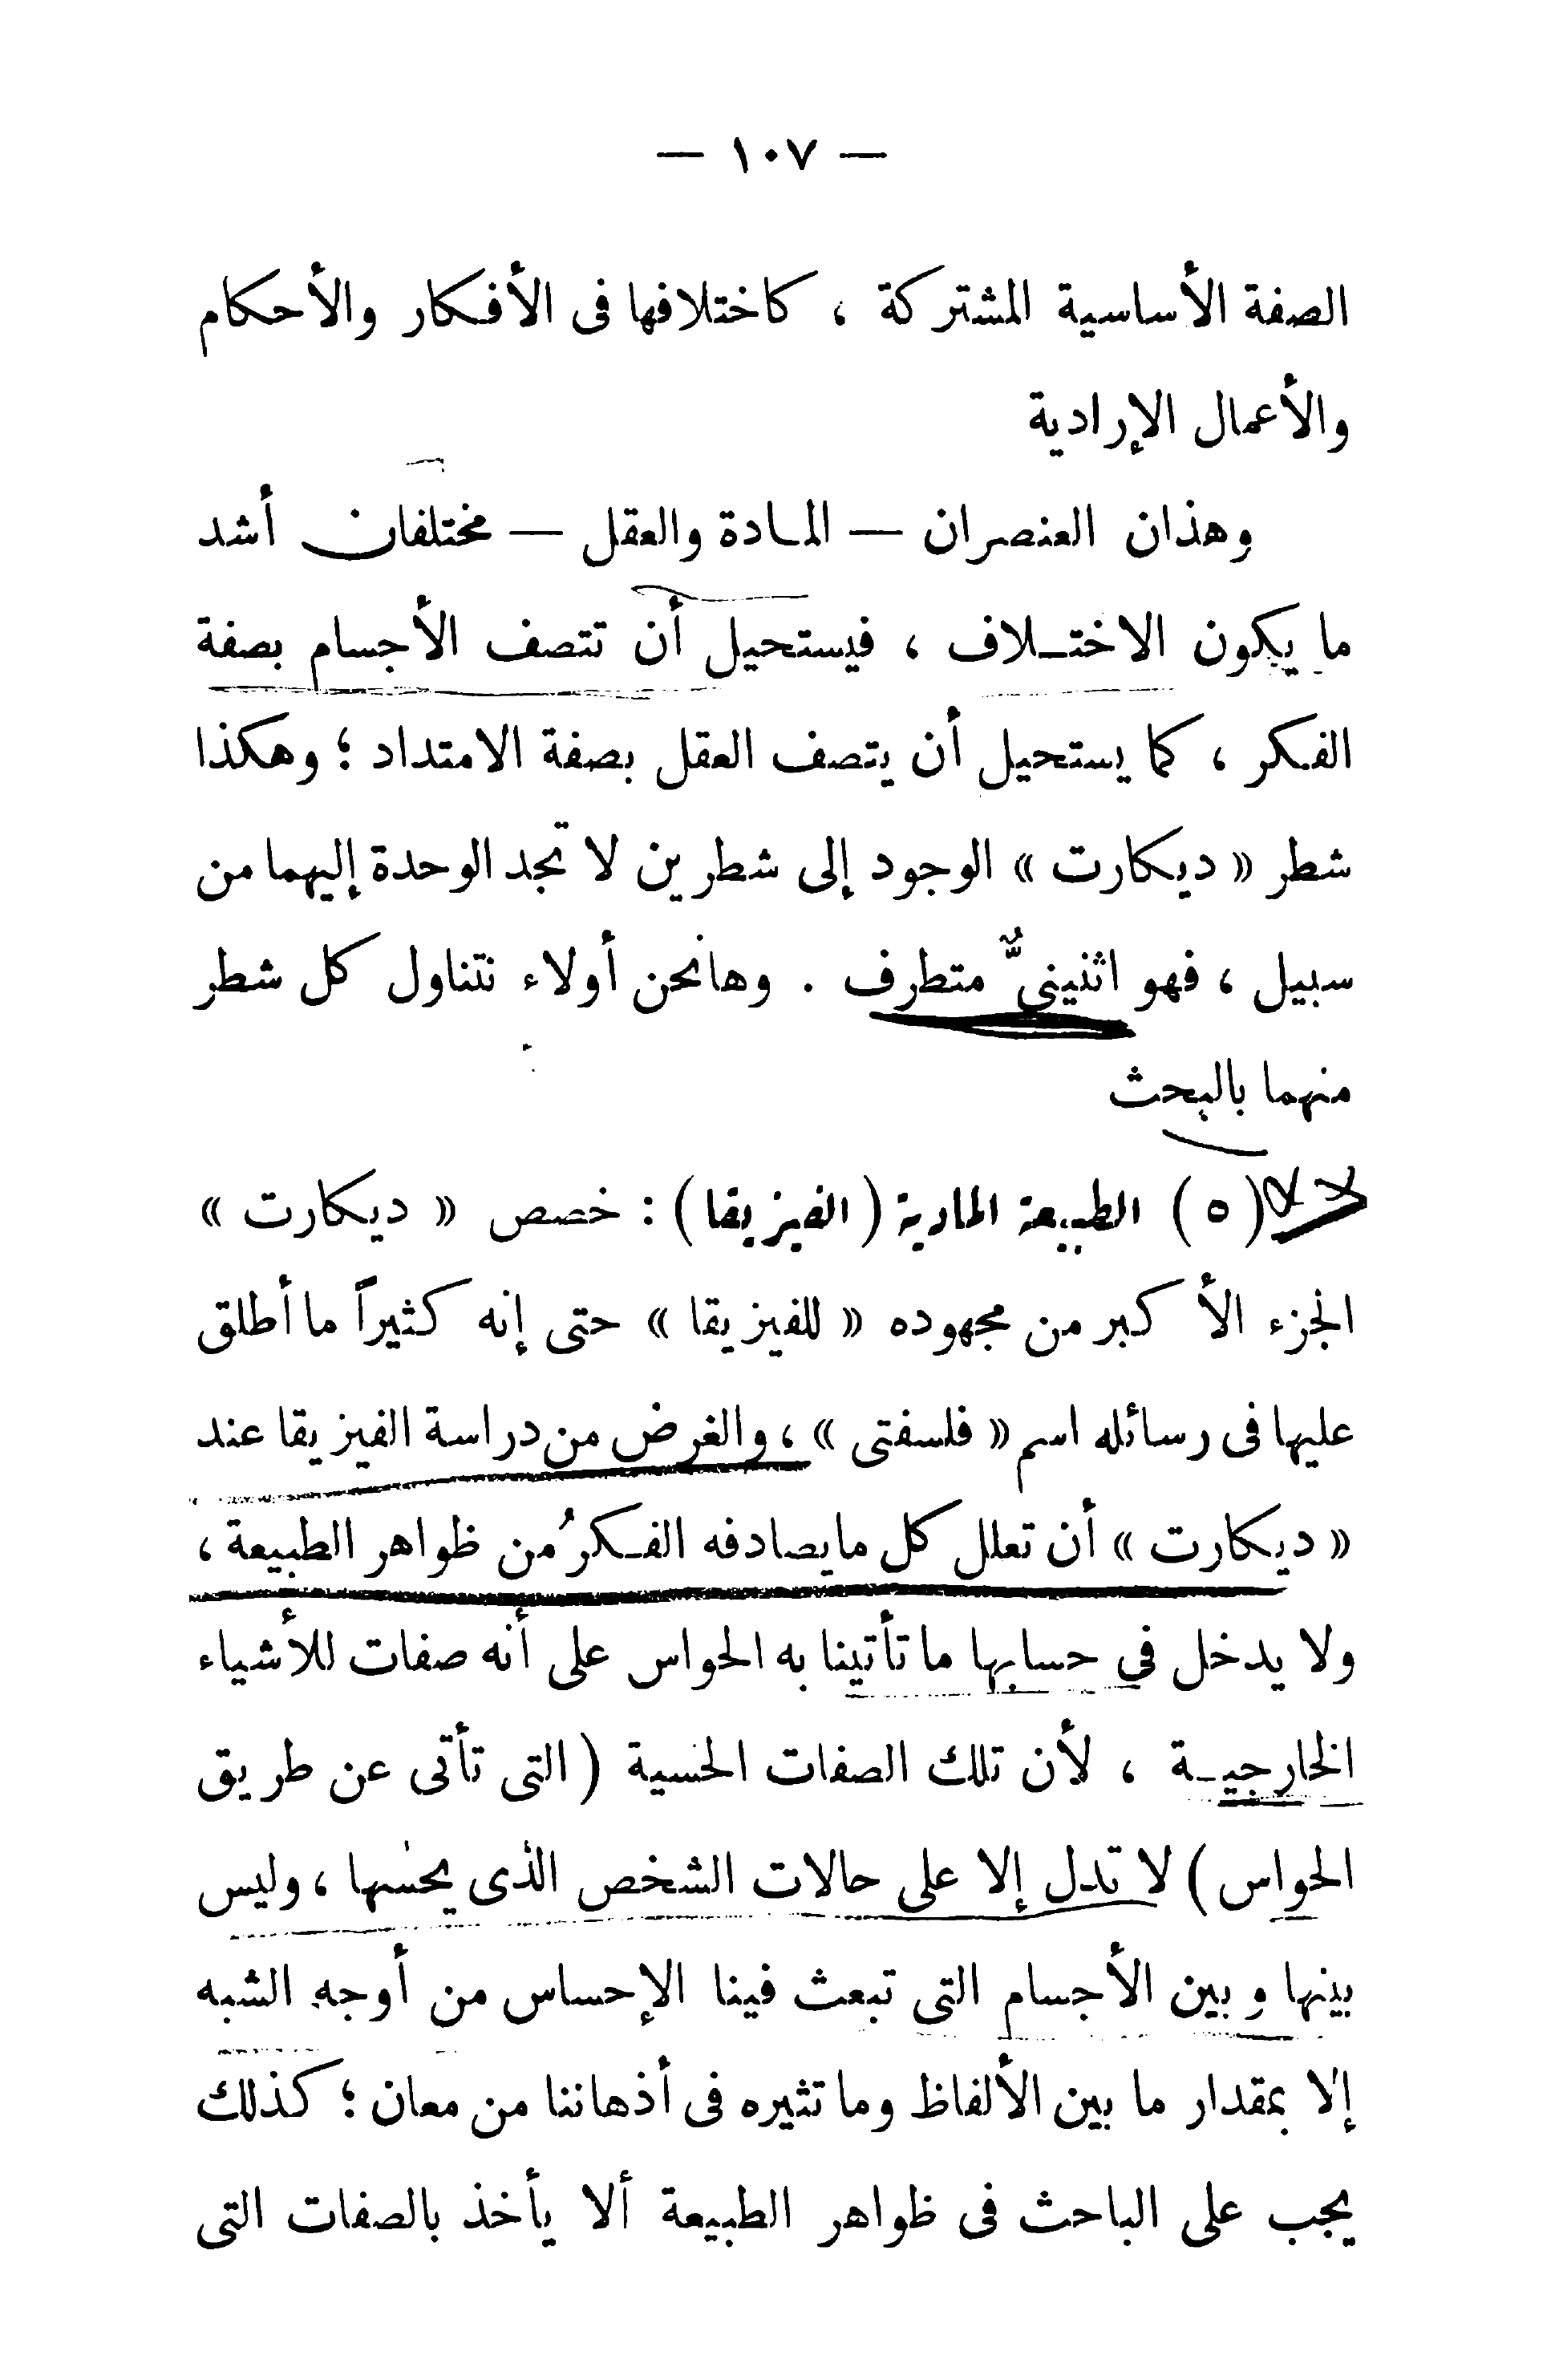 — ١٠٧ —
الصفة الأساسية المشتركة ، كاختلافها فى الأفكار والأحكام
والأعمال الإرادية
وهذان العنصران — المادة والعقل — مختلفان أشد
ما يكون الاختلاف ، فيستحيل أن تتصف الأجسام بصفة
الفكر ، كما يستحيل أن يتصف العقل بصفة الامتداد ؛ وهكذا
شطر « ديكارت » الوجود إلى شطرين لا تجد الوحدة إليهما من
سبيل ، فهو اثنينىٌّ متطرف . وهانحن أولاء نتناول كل شطر
منهما بالبحث
(٥) الطبيعة المادية (الفيزيقا) : خصص « ديكارت »
الجزء الأكبر من مجهوده « للفيزيقا » حتى إنه كثيراً ما أطلق
عليها فى رسائله اسم « فلسفتى » ، والغرض من دراسة الفيزيقا عند
« ديكارت » أن تعلل كل ما يصادفه الفكرُ من ظواهر الطبيعة ،
ولا يدخل فى حسابها ما تأتينا به الحواس على أنه صفات للأشياء
الخارجية ، لأن تلك الصفات الحسية (التى تأتى عن طريق
الحواس) لا تدل إلا على حالات الشخص الذى يحسها ، وليس
بينها وبين الأجسام التى تبعث فينا الإحساس من أوجه الشبه
إلا بمقدار ما بين الألفاظ وما تثيره فى أذهاننا من معان ؛ كذلك
يجب على الباحث فى ظواهر الطبيعة ألا يأخذ بالصفات التى